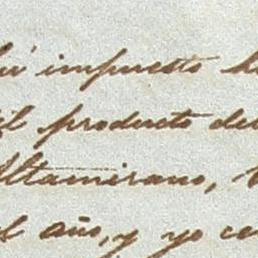 impuesto
el producto de
Altamirano,
el año, y yo ce